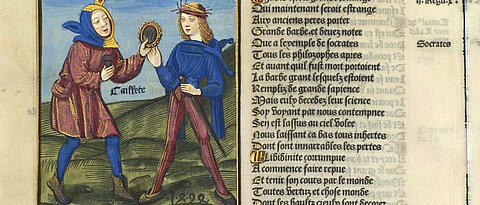 Qui maintenant seroit estrange
Aux anciens peres porter
Grande barbe et deuez noter
Que a lexemple de socrates
Socrates
Tous les philosophes apres
Et auant quil fust mort portoient
La barbe grant lesquelz estoient
Rempliz de grande sapience
Mais eulx decedez leur science
Soy voyant par nous contempnee
Sen est lassus au ciel volee
Nous laissant ca bas tous inhertes
Dont sont innarrables les pertes
Libidinite corrumpue
A commence faire repue
Et tenir son cours par le monde
Toutes vertuz et chose monde
Caillete